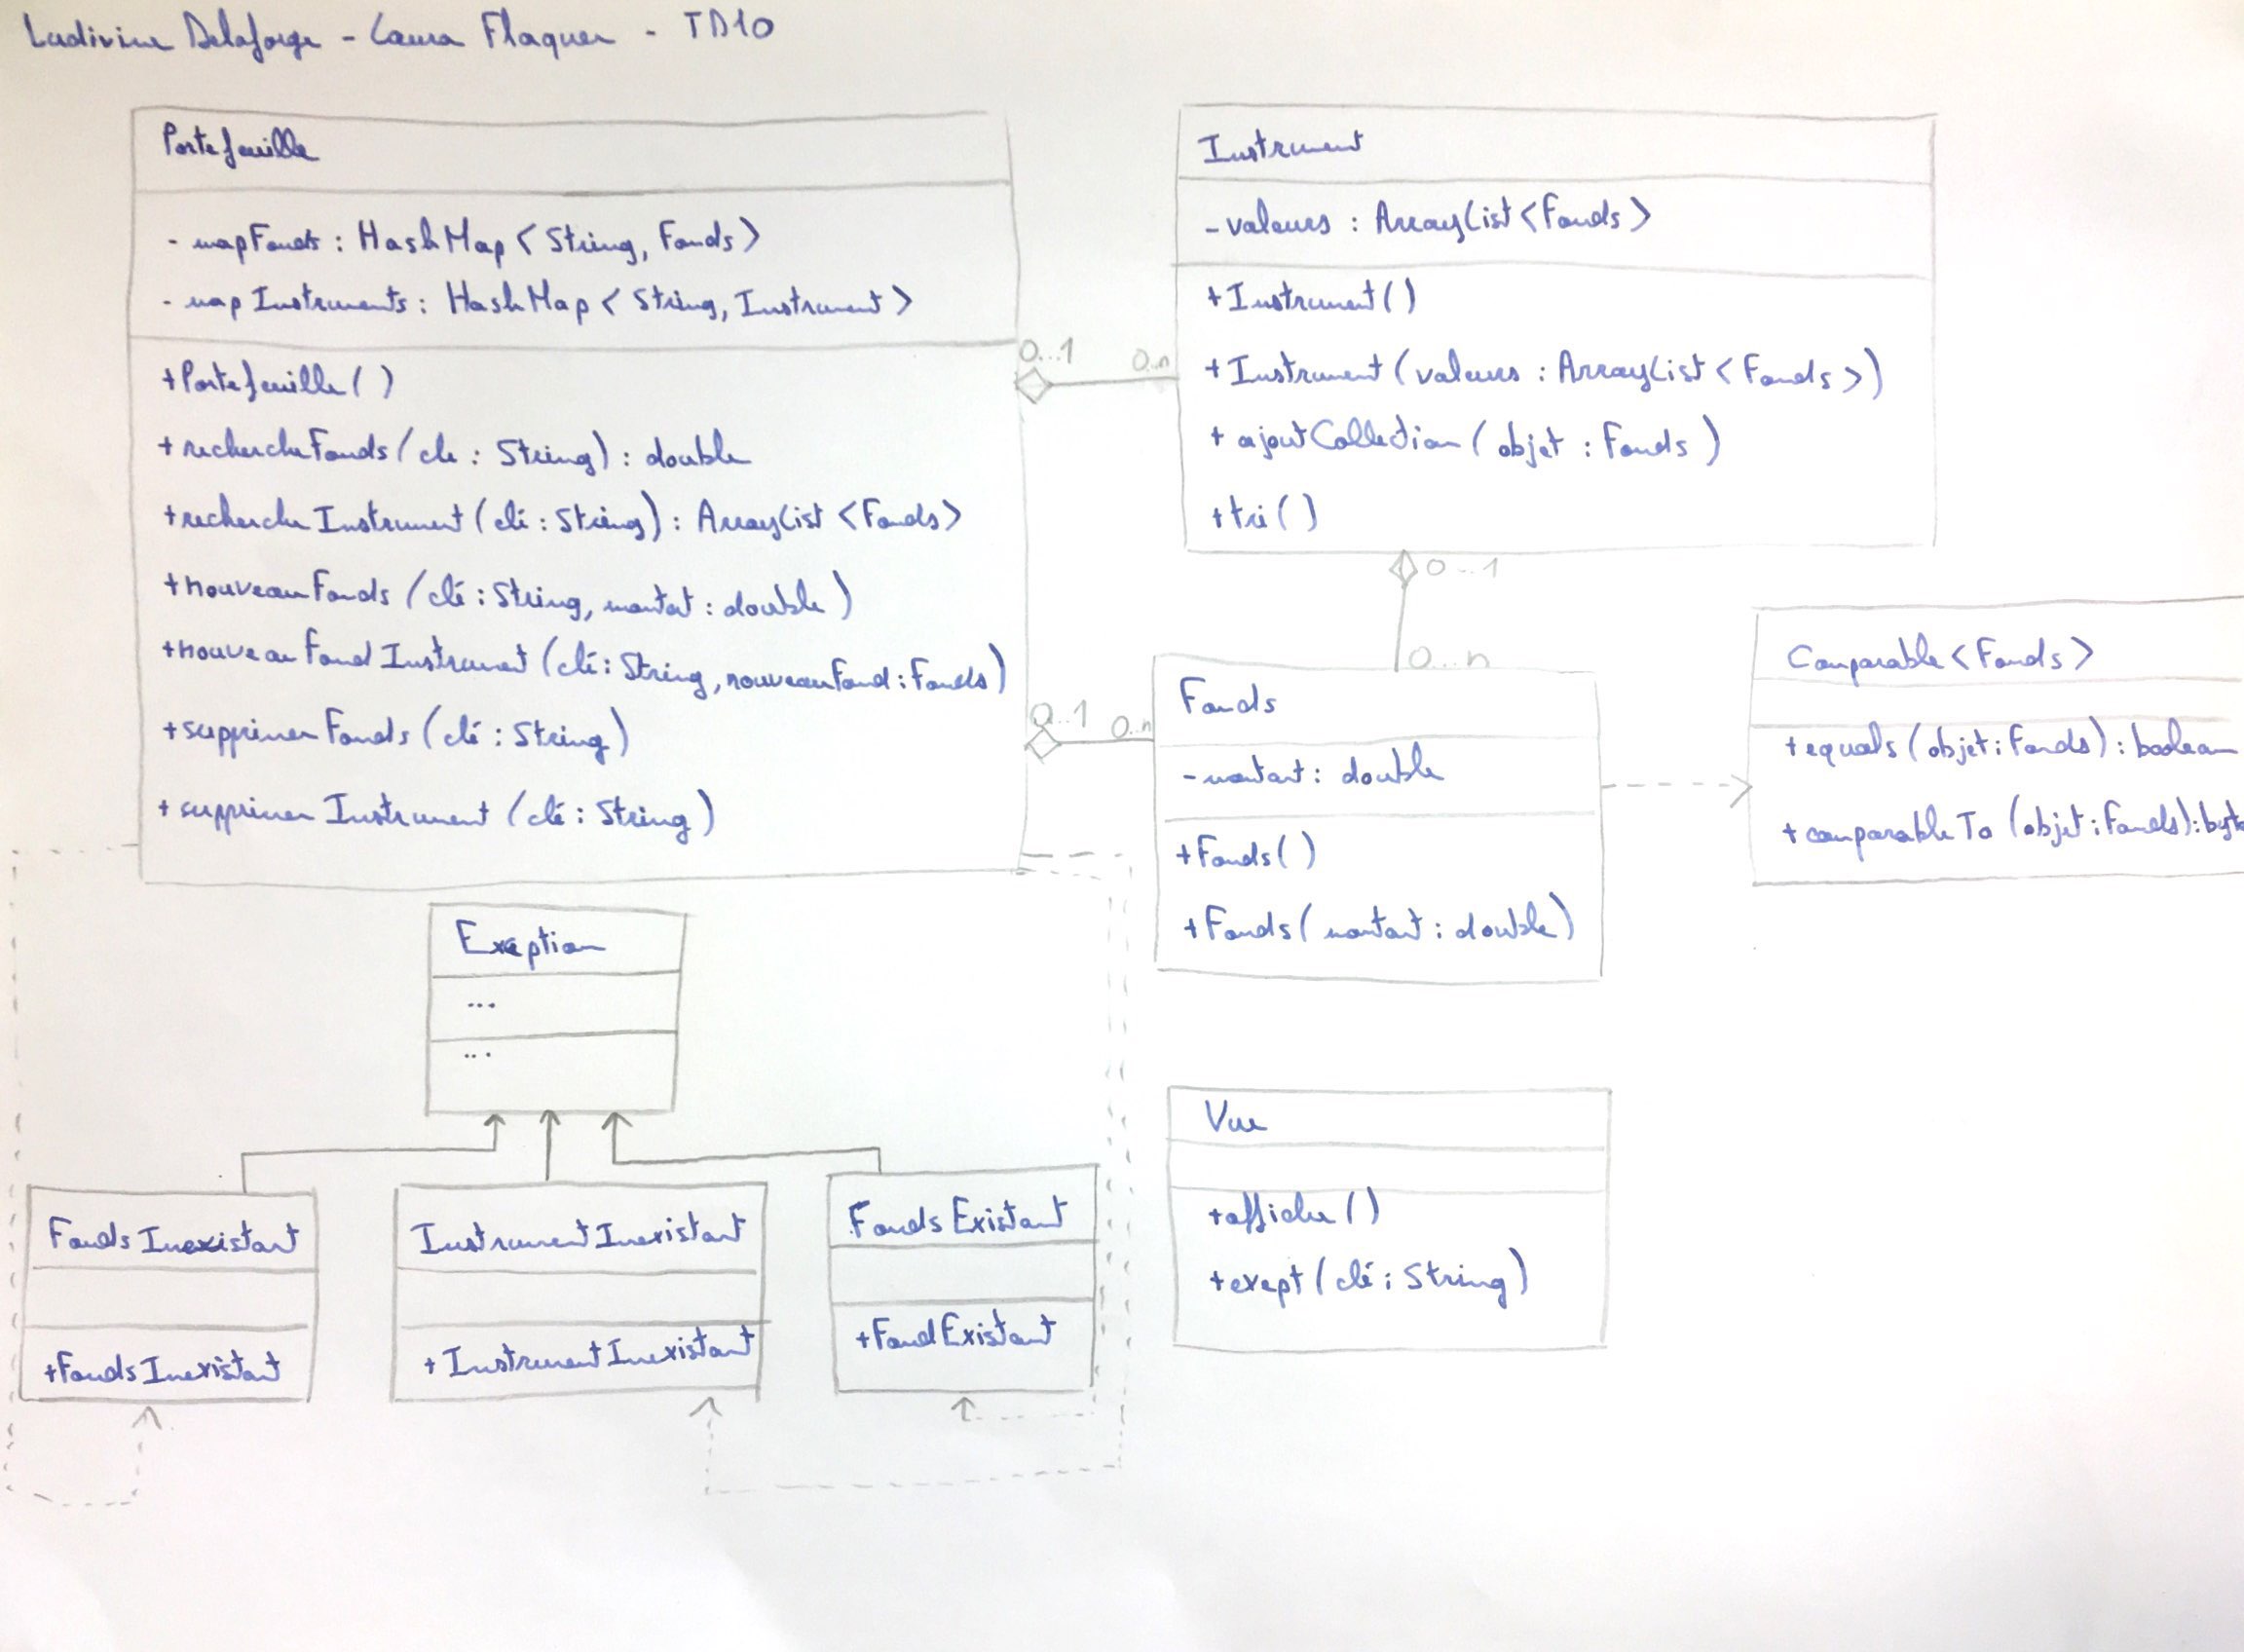 Ludivine Delaforge - Laura Flaquer - TD10
Portefeuille
- mapFonds : HashMap < String, Fonds >
- map Instruments : HashMap < String, Instrument >
+Portefeuille ( )
+ recherche Fonds ( cle : String ) : double
+recherche Instrument ( clé : String ) : ArrayList <Fonds>
+nouveau Fonds ( clé : String, montat : double )
+nouveau Fond Instrument ( clé : String, nouveau Fond : Fonds )
+supprimer Fonds ( clé : String )
+ supprimer Instrument ( clé : String )
0...1
0..n
0..1
0..n
Instrument
- valeurs : ArrayList <Fonds >
+ Instrument ( )
+ Instrument ( valeurs : ArrayList < Fonds > )
+ ajout Collection ( objet : Fonds )
+ tri ( )
0...1
0...n
Fonds
- montant : double
+ Fonds ( )
+ Fonds ( montant : double )
Comparable < Fonds >
+ equals ( objet : Fonds ) : boolean
+ comparable To ( objet : Fonds ) : byte
Exeption
...
...
Fonds Inexistant
+Fonds Inexistant
Instrument Inexistant
+ Instrument Inexistant
Fonds Existant
+Fond Existant
Vue
+afficher ( )
+exept ( clé : String )